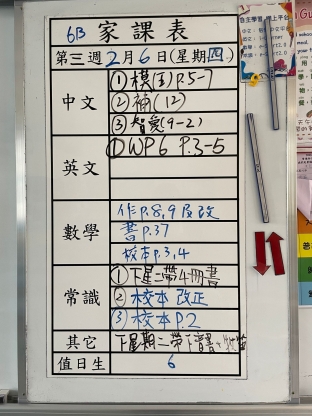 6B 家課表
第三週2月6日(星期四)
中文
①模(3)P.5-7
②補(12)
③智愛(9-2)
英文
①WP6 P.3-5
數學
作P.8,9及改
書P.37
校本P.3,4
常識
①下星二帶4冊書
②校本改正
③校本P.2
其它
下星期二帶下音書+牧笛
值日生
6